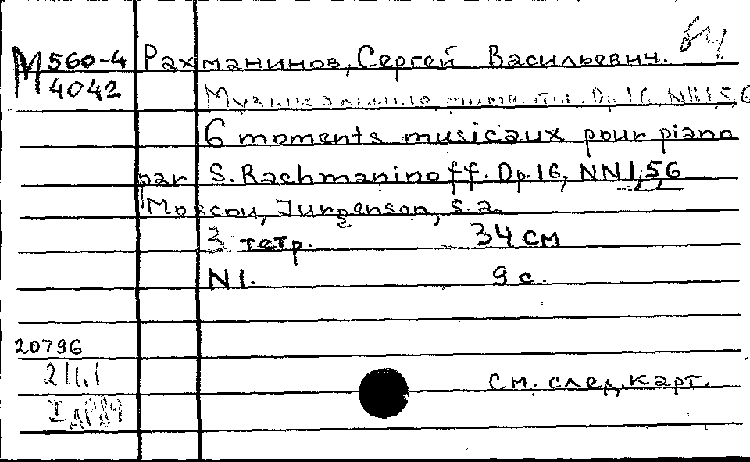 М 560-4 Рахманинов, Сергей Васильевич.
4042
Op. 16, NN 1,5,6
6 moments musicaux pour piano
par S. Rachmaninoff. Op. 16, NN 1,5,6
Moscou, Jurgenson, s. a.
3 тетр. 34 см
N 1. 9 с.
20796
2/II.1
См. след. карт.